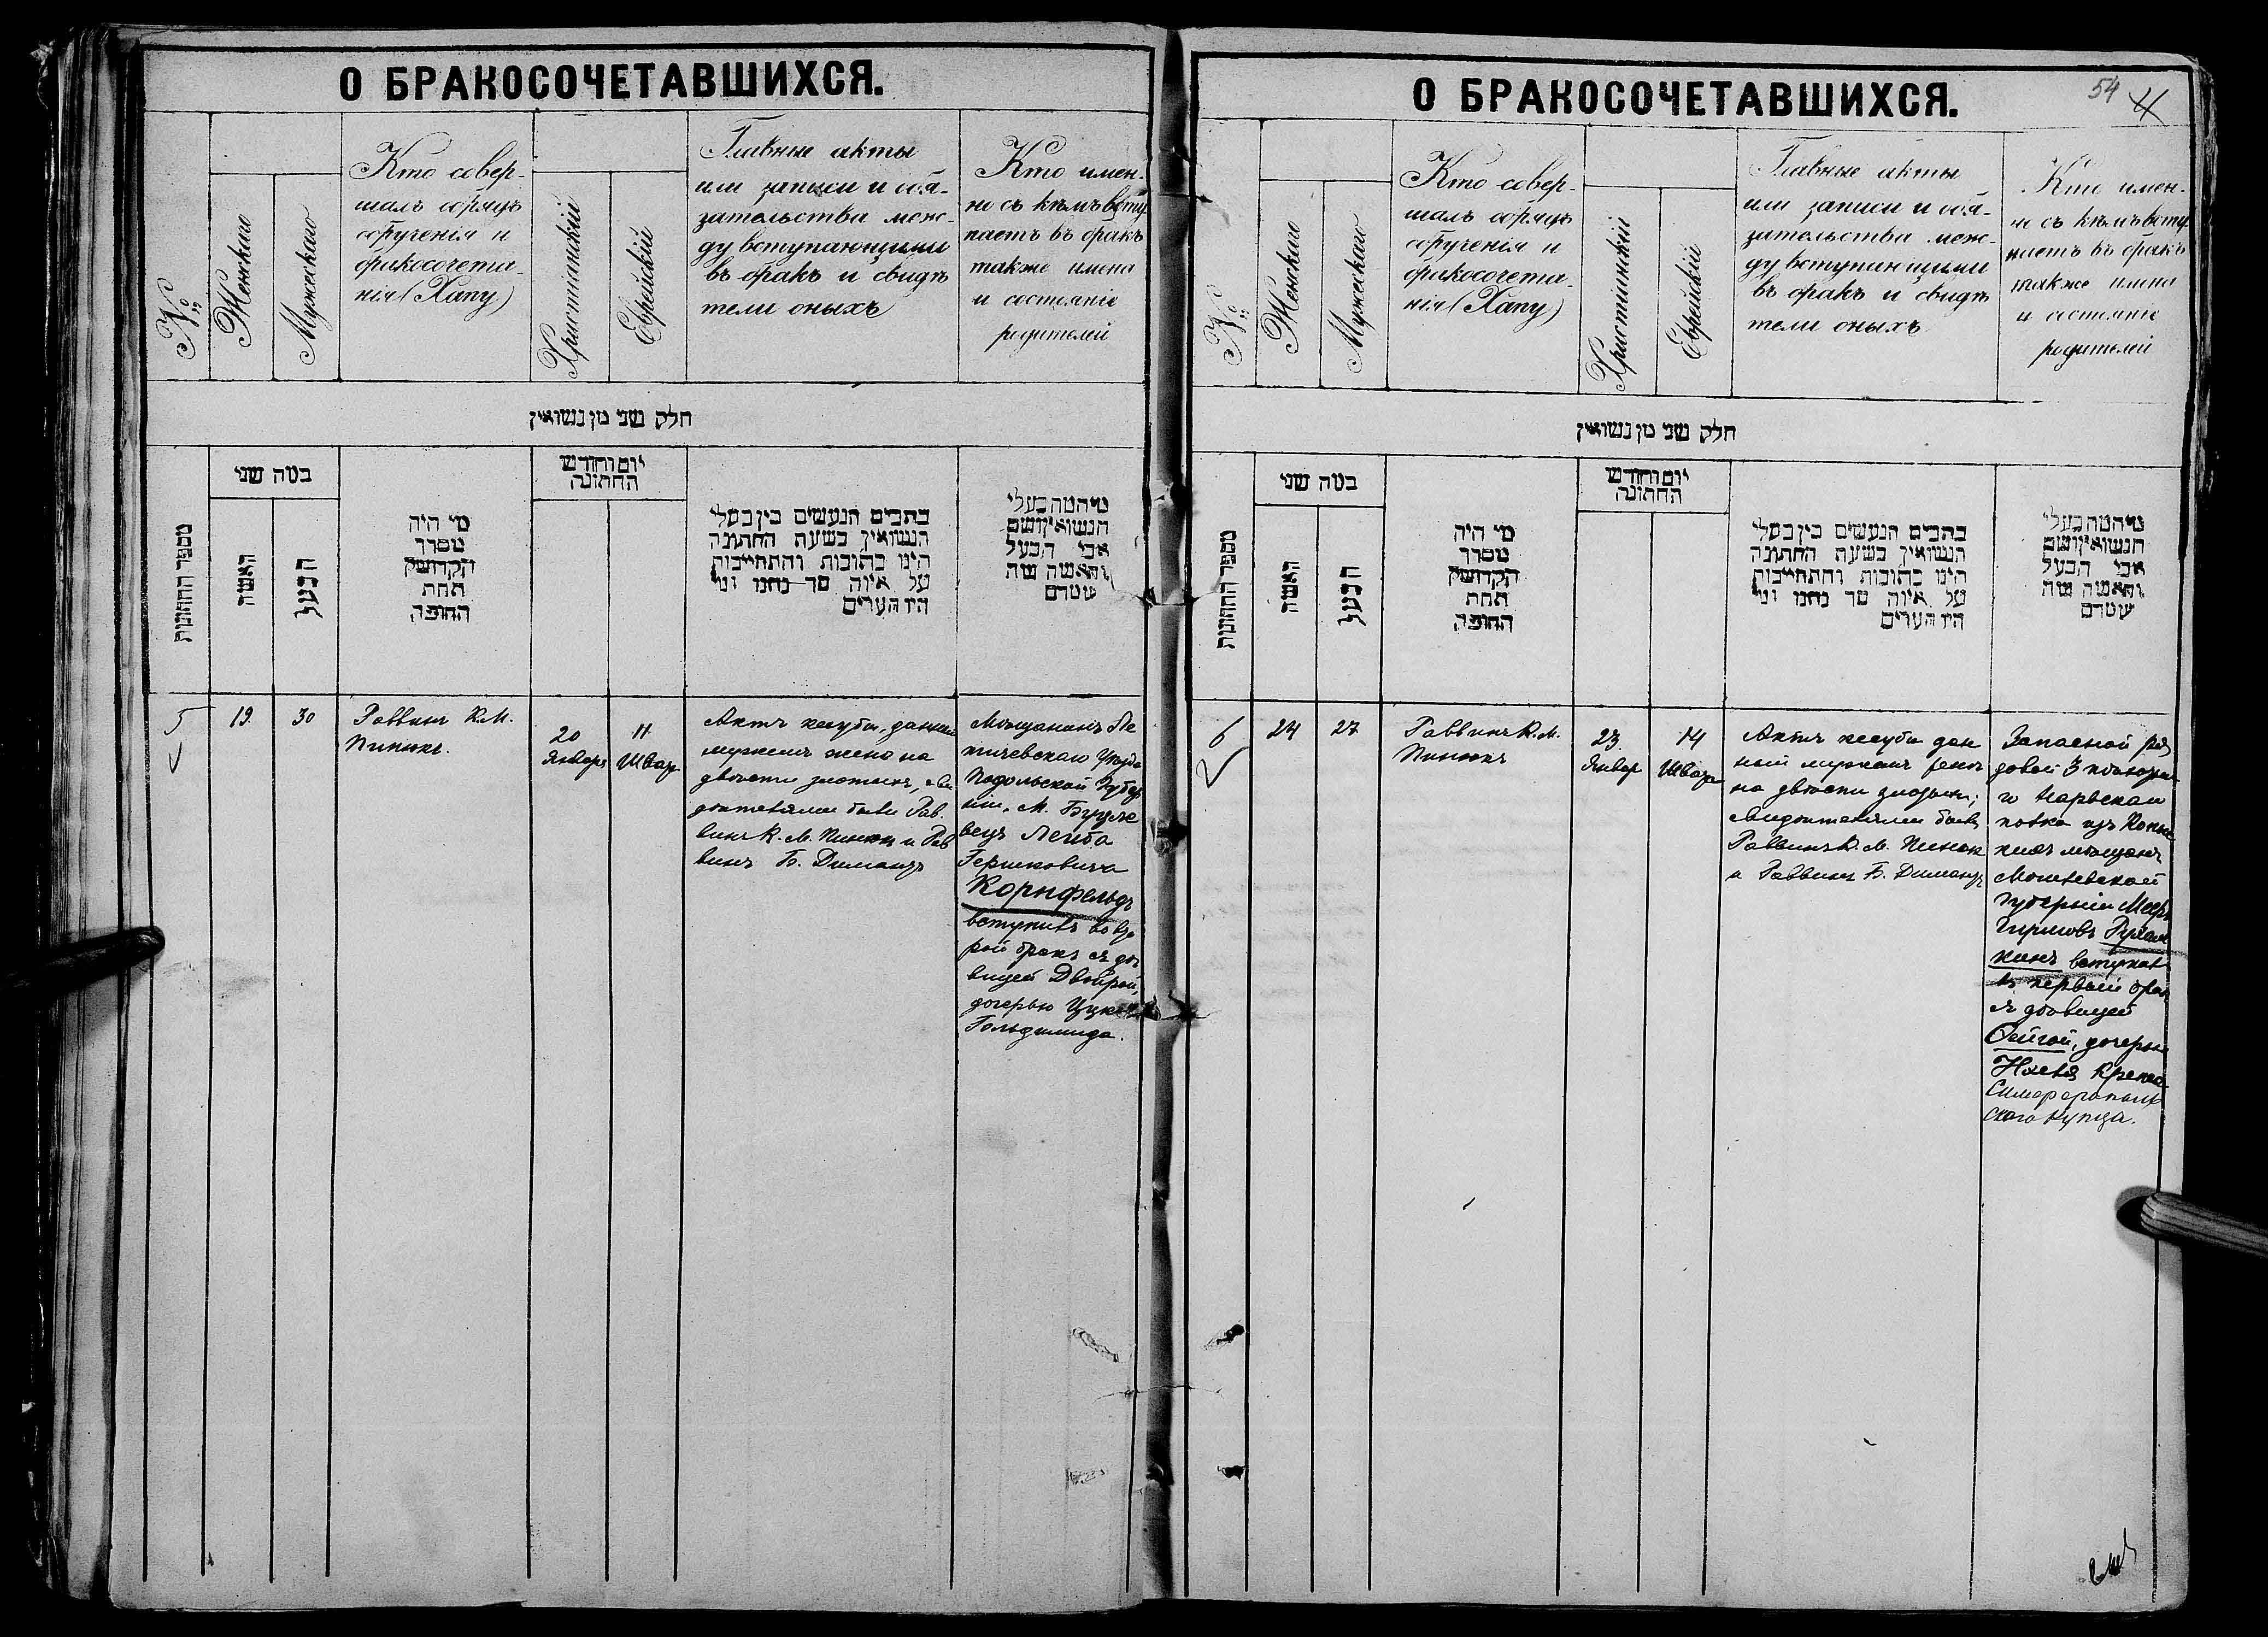 О БРАКОСОЧЕТАВШИХСЯ.
№
Женскаго
Мужескаго
Кто совер-
шалъ обрядъ
обрученія и
бракосочета-
нія (Хапу)
Христіанскій
Еврейскій
Главные акты
или записи и обя-
зательства меж-
ду вступающими
въ бракъ и свидѣ
тели оныхъ
Кто имен-
но съ кѣмъ всту
паетъ въ бракъ
также имена
и состояніе
родителей
חלק שני מן נשואין
מספר החתונות
כמה שני
האשה
הבעל
מי היה
מסדר
הקדושין
תחת
החופה
יום וחודש
החתונה
כתבים הנעשים בין בעלי
הנשואין בשעת החתונה
היינו כתובות והתחייבות
על איזה סך נתנו ומי
היו העדים
מי המה בעלי
הנשואין ושם
אבי הבעל
והאשה
5
19.
30
Раввинъ К.М.
Пинюкъ.
20
Января
11
Шватъ
Актъ кесубы, данный
мужемъ женѣ на
двѣсти злотыхъ, сви
дѣтелями были Рав.
винъ К. М. Пинюкъ и Рав
винъ Б. Димантъ
Мѣщанинъ Ле
тичевскаго Уѣзда
Подольской Губер
ніи, М.
Лейба
Гершковичъ
Корнфельдъ
вступилъ во вто
рой бракъ съ дѣ
вицей Двойрой,
дочерью
Гольдшмида.
О БРАКОСОЧЕТАВШИХСЯ.
54
4
№
Женскаго
Мужескаго
Кто совер-
шалъ обрядъ
обрученія и
бракосочета-
нія (Хапу)
Христіанскій
Еврейскій
Главные акты
или записи и обя-
зательства меж-
ду вступающими
въ бракъ и свидѣ
тели оныхъ
Кто имен-
но съ кѣмъ всту
паетъ въ бракъ
также имена
и состояніе
родителей
חלק שני מן נשואין
מספר החתונות
כמה שני
האשה
הבעל
מי היה
מסדר
הקדושין
תחת
החופה
יום וחודש
החתונה
כתבים הנעשים בין בעלי
הנשואין בשעת החתונה
היינו כתובות והתחייבות
על איזה סך נתנו ומי
היו העדים
מי המה בעלי
הנשואין ושם
אבי הבעל
והאשה
6
24
27
Раввинъ К. М.
Пинюкъ
23
Январ
14
Шватъ
Актъ кесубы дан
ный мужемъ женѣ
на двѣсти злотыхъ;
свидѣтелями были
Раввинъ К. М. Пинюкъ
и Раввинъ Б. Димантъ
Запасной ря
довой 3
Нарвскаго
полка изъ
мѣщанъ
Могилевской
губерніи Мееръ
вступилъ
въ первый бракъ
съ дѣвицей
Фейгой, дочерью
Симферополь
скаго купца.